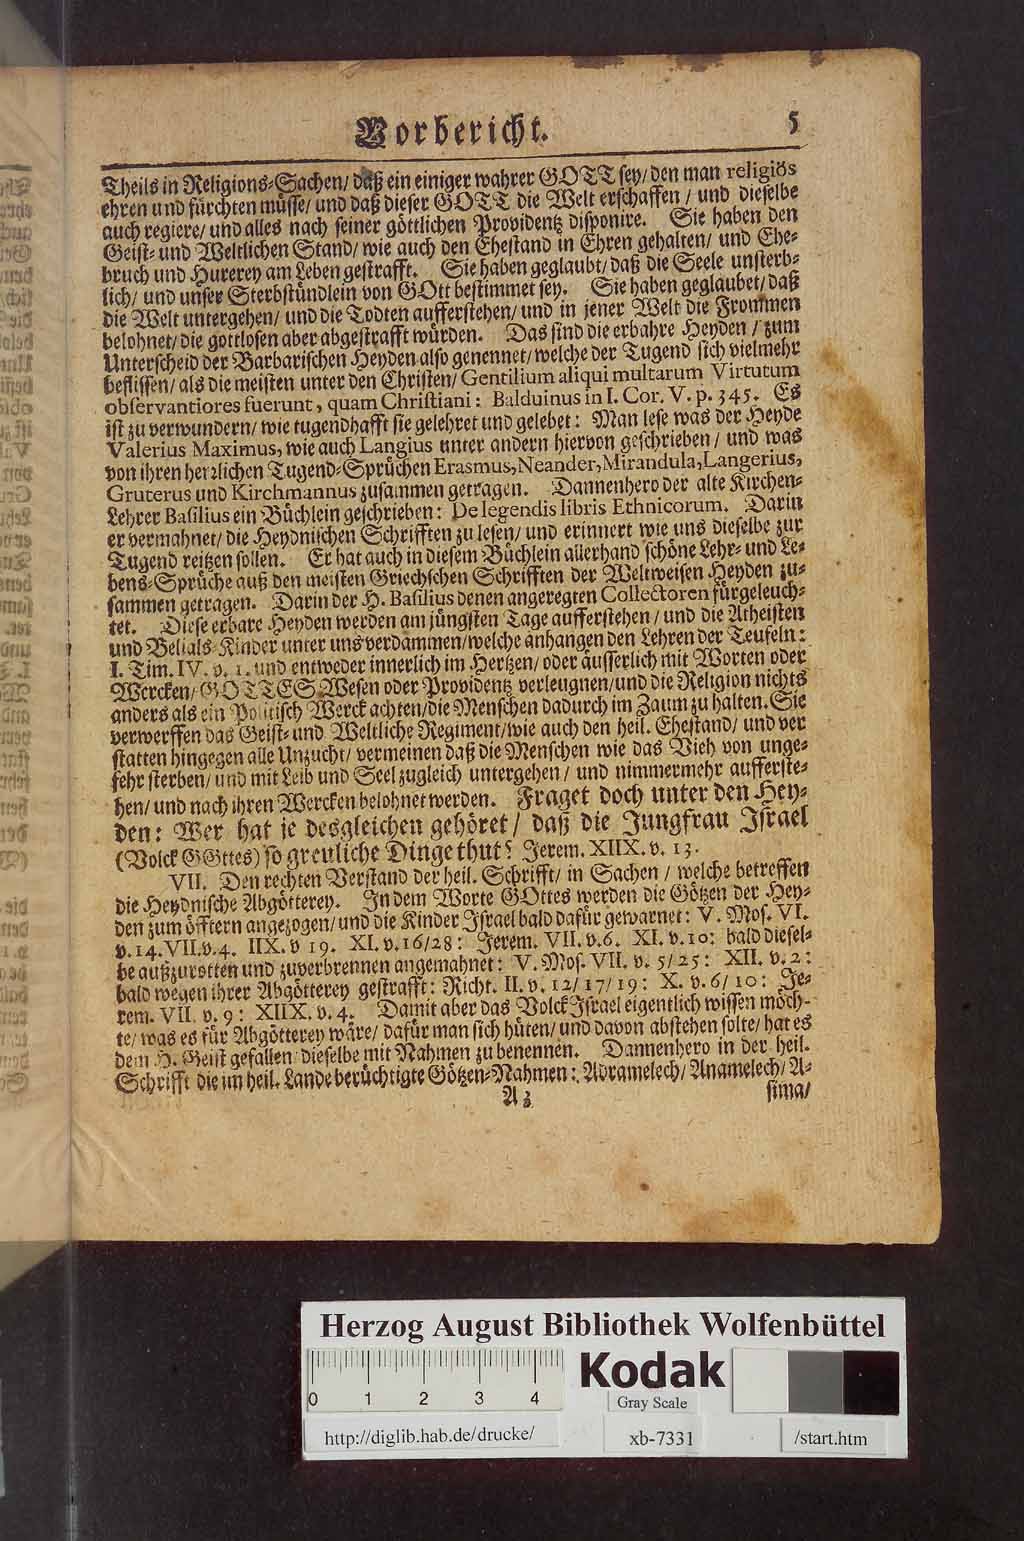 Vorbericht. 5
Theils in Religions-Sachen/ daß ein einiger wahrer GOTT sey/ den man religiös
ehren und fürchten müsse/ und daß dieser GOTT die Welt erschaffen/ und dieselbe
auch regiere/ und alles nach seiner göttlichen Providentz disponire. Sie haben den
Geist- und Weltlichen Stand/ wie auch den Ehestand in Ehren gehalten/ und Ehe-
bruch und Hurerey am Leben gestrafft. Sie haben geglaubt/ daß die Seele unsterb-
lich/ und unser Sterbstündlein von GOtt bestimmet sey. Sie haben geglaubet/ daß
die Welt untergehen/ und die Todten aufferstehen/ und in jener Welt die Frommen
belohnet/ die gottlosen aber abgestrafft würden. Das sind die erbahre Heyden/ zum
Unterscheid der Barbarischen Heyden also genennet/ welche der Tugend sich vielmehr
beflissen/ als die meisten unter den Christen/ Gentilium aliqui multarum Virtutum
observantiores fuerunt, quam Christiani: Balduinus in I. Cor. V. p. 345. Es
ist zu verwundern/ wie tugendhafft sie gelehret und gelebet: Man lese was der Heyde
Valerius Maximus, wie auch Langius unter andern hiervon geschrieben/ und was
von ihren herzlichen Tugend-Sprüchen Erasmus, Neander, Mirandula, Langerius,
Gruterus und Kirchmannus zusammen getragen. Dannenhero der alte Kirchen-
Lehrer Basilius ein Büchlein geschrieben: De legendis libris Ethnicorum. Darin
er vermahnet/ die Heydnischen Schrifften zu lesen/ und erinnert wie uns dieselbe zur
Tugend reitzen sollen. Er hat auch in diesem Büchlein allerhand schöne Lehr- und Le-
bens-Sprüche auß den meisten Griechschen Schrifften der Weltweisen Heyden zu-
sammen getragen. Darin der H. Basilius denen angeregten Collectoren fürgeleuch-
tet. Diese erbare Heyden werden am jüngsten Tage aufferstehen/ und die Atheisten
und Belials-Kinder unter uns verdammen/ welche anhangen den Lehren der Teufeln:
I. Tim. IV. v. 1. und entweder innerlich im Hertzen/ oder äusserlich mit Worten oder
Wercken/ GOTTES Wesen oder Providentz verleugnen/ und die Religion nichts
anders als ein Politisch Werck achten/ die Menschen dadurch im Zaum zu halten. Sie
verwerffen das Geist- und Weltliche Regiment/ wie auch den heil. Ehestand/ und ver
statten hingegen alle Unzucht/ vermeinen daß die Menschen wie das Vieh von unge-
fehr sterben/ und mit Leib und Seel zugleich untergehen/ und nimmermehr aufferste-
hen/ und nach ihren Wercken belohnet werden. Fraget doch unter den Hey-
den: Wer hat je desgleichen gehöret/ daß die Jungfrau Israel
(Volck GOttes) so greuliche Dinge thut? Jerem. XIIX. v. 13.
VII. Den rechten Verstand der heil. Schrifft/ in Sachen/ welche betreffen
die Heydnische Abgötterey. In dem Worte GOttes werden die Götzen der Hey-
den zum öfftern angezogen/ und die Kinder Israel bald dafür gewarnet: V. Mos. VI.
v. 14. VII. v. 4. IIX. v 19. XI. v. 16/28: Jerem. VII. v. 6. XI. v. 10: bald diesel-
be außzurotten und zuverbrennen angemahnet: V. Mos. VII. v. 5/25: XII. v. 2:
bald wegen ihrer Abgötterey gestrafft: Richt. II. v. 12/17/19: X. v. 6/10: Je-
rem. VII. v. 9: XIIX. v. 4. Damit aber das Volck Israel eigentlich wissen möch-
te/ was es für Abgötterey wäre/ dafür man sich hüten/ und davon abstehen solte/ hat es
dem H. Geist gefallen/ dieselbe mit Nahmen zu benennen. Dannenhero in der heil.
Schrifft die im heil. Lande berüchtigte Götzen-Nahmen: Adramelech/ Anamelech/ A-
A 3 sima/
Herzog August Bibliothek Wolfenbüttel
0 1 2 3 4
Kodak
Gray Scale
http://diglib.hab.de/drucke/ xb-7331 /start.htm